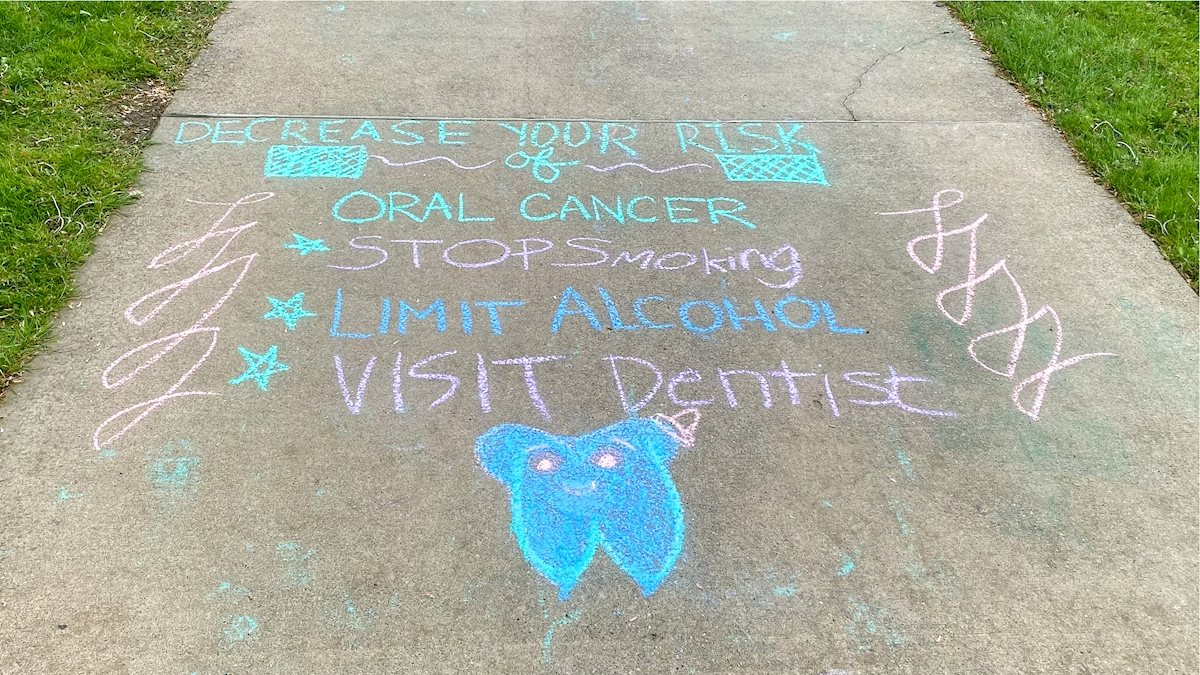 DECREASE YOUR RISK
of
ORAL CANCER
STOP Smoking
LIMIT ALCOHOL
VISIT Dentist